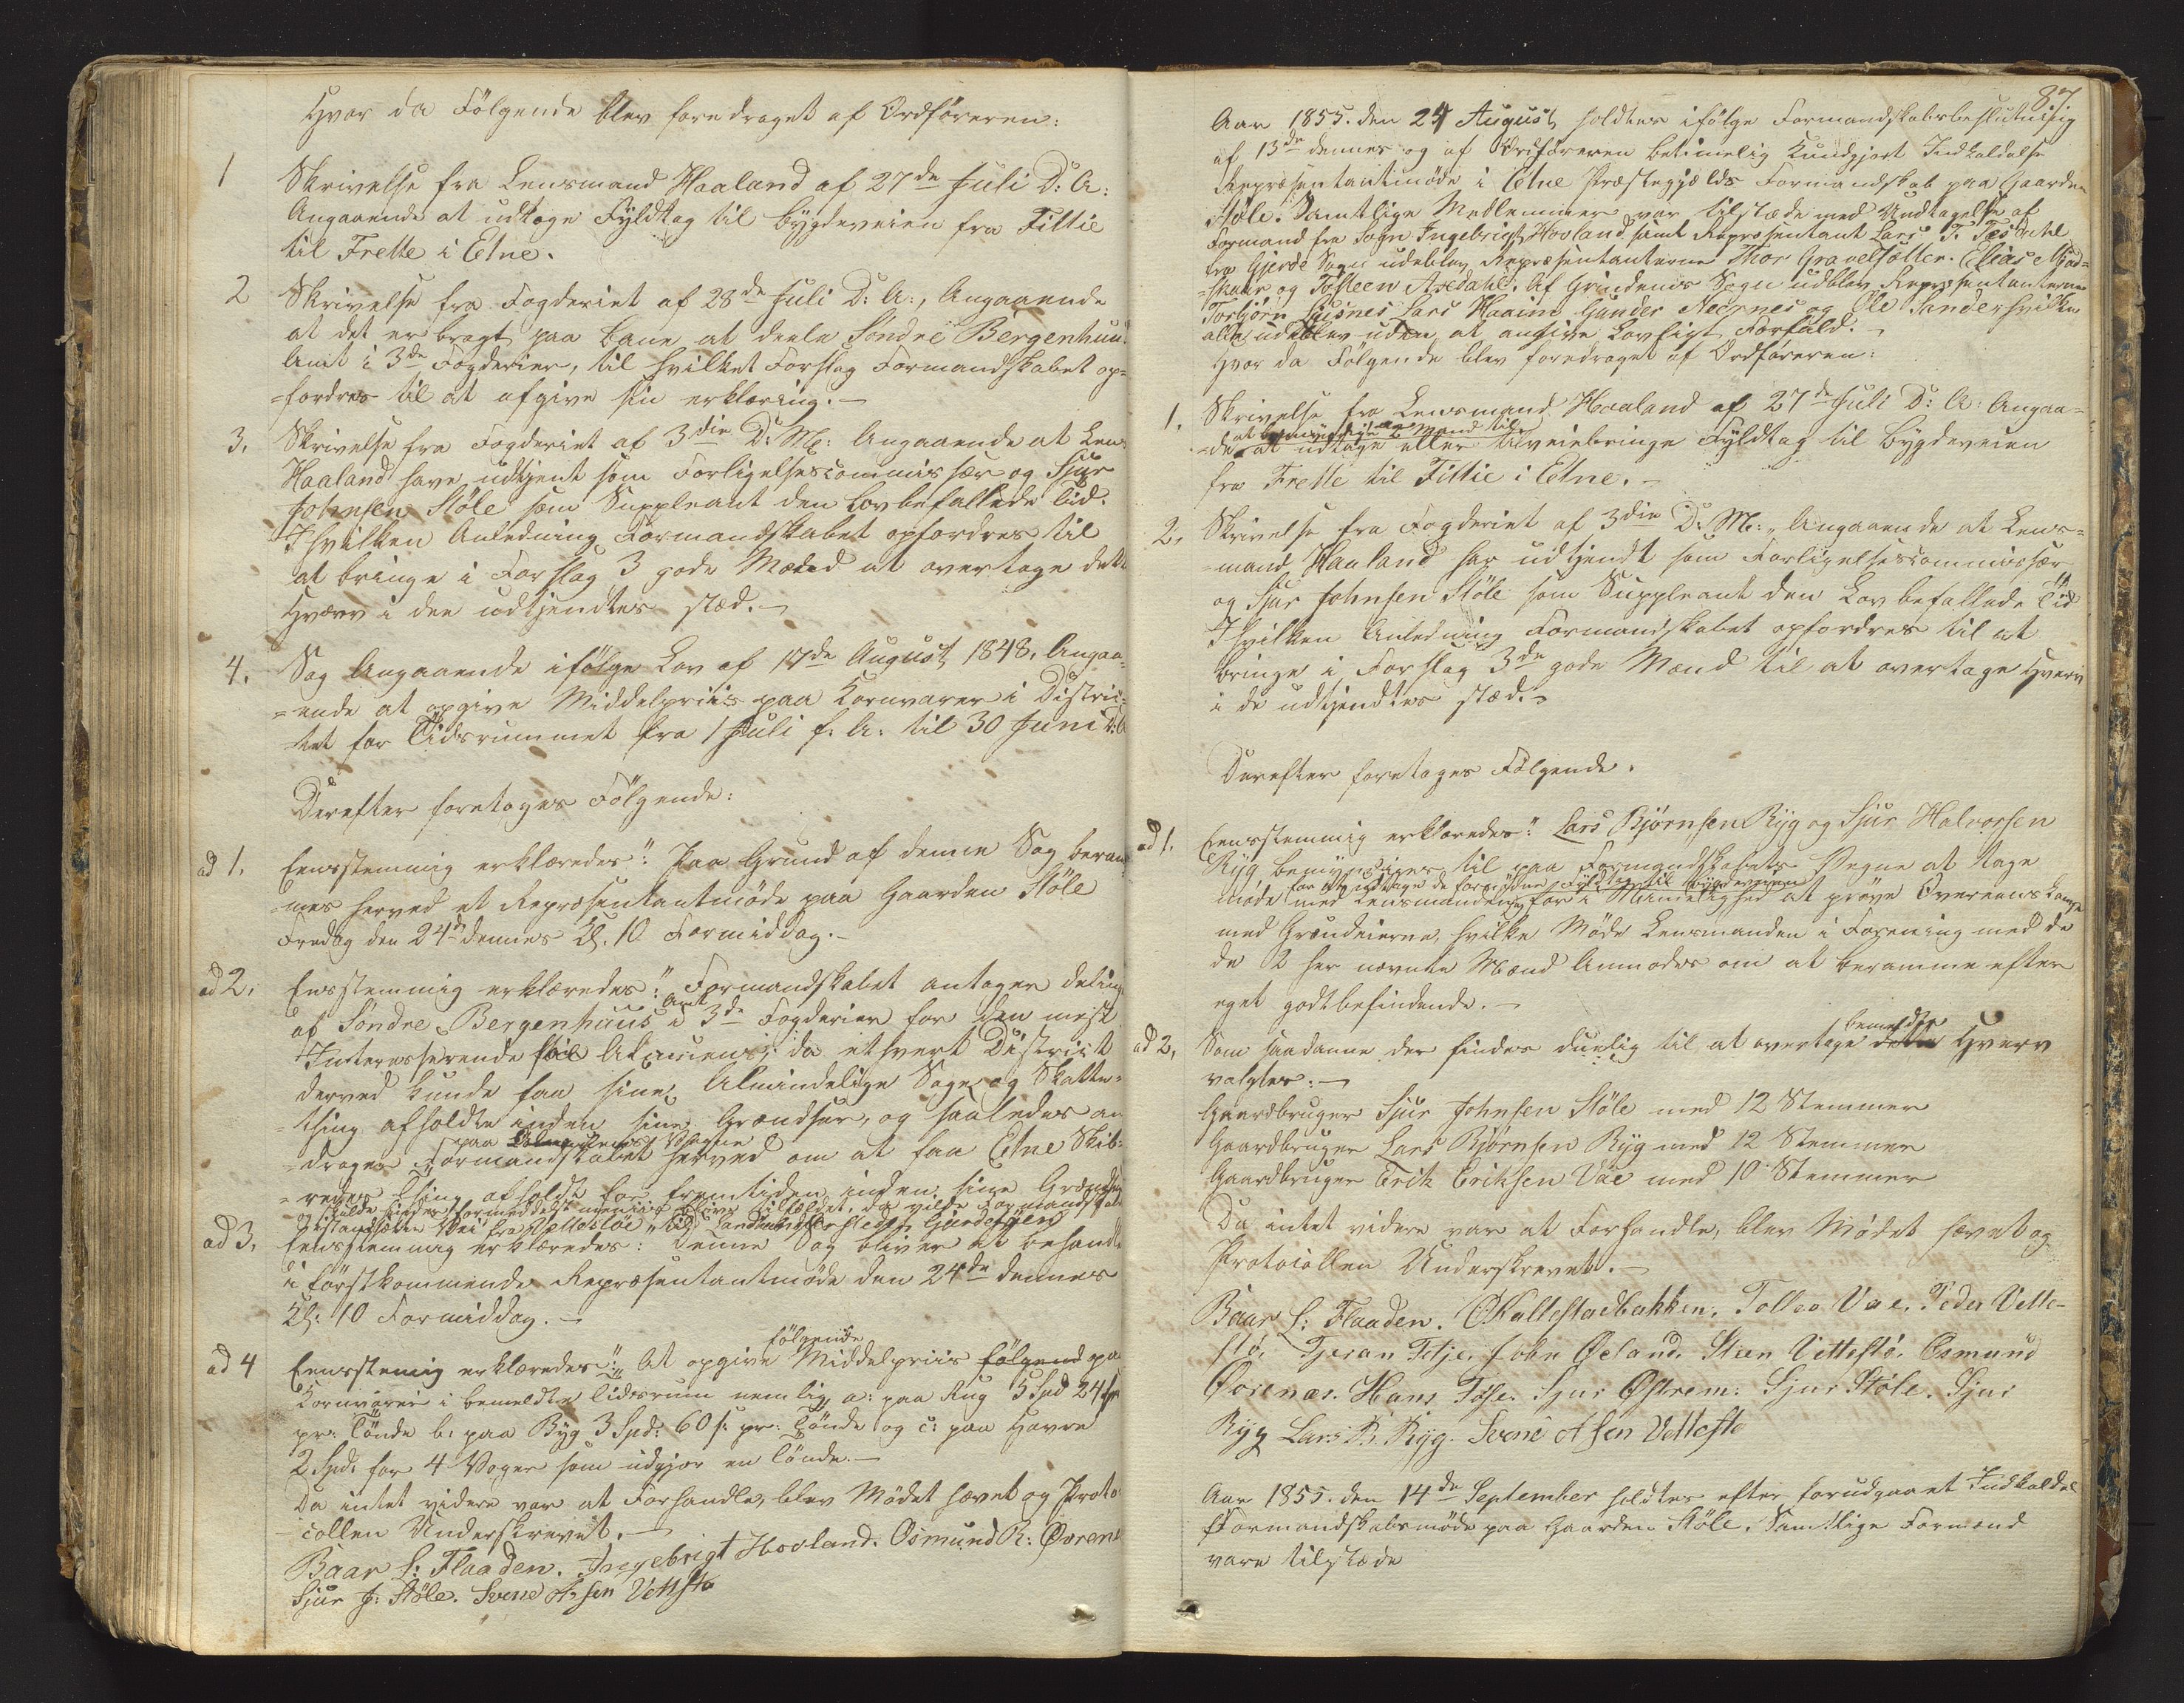 Hvor da Følgende blev foredraget af Ordføreren:
1 Skrivelse fra Lensmand Haaland af 27de Juli D: A:
Angaaende at udtage Fyldtag til bygdeveien fra Tittie
til Frette i Etne.
2 Skrivelse fra Fogderiet af 28de Juli D: A:, Angaaende
at det er bragt paa bane at deele Søndre Bergenhuus
Amt i 3de Fogderier, til hvilket Forslag Formandskabet op=
=fordres til at afgive sin erklæring.—
3. Skrivelse fra Fogderiet af 3die D: M: Angaaende at Len
Haaland have udtjent som Forligelsescommissær og Sjur
Johnsen Støle som Suppleant den Lovbefallede Tid.
I hvilken Anledning Formandskabet opfordres til
at bringe i Forslag 3 gode Mænd at overtage dette
Hværv i den udtjendtes stæd.—
4. Sag Angaaende ifølge Lov af 17de August 1848. Angaa=
=ende at opgive Middelpriis paa Kornvarer i Distric=
tet for Tidsrummet fra 1 Juli f: A: til 30 Juni D: A
Derefter foretoges Følgende:
ad 1. Eensstemmig erklæredes: Paa Grund af denne Sag beram
=mes herved et Repræsentantmøde paa Gaarden Støle
Fredag den 24de dennes Kl. 10 Formiddag.—
ad 2. Eensstemmig erklæredes: Formandskabet antager deling
af Søndre Bergenhuus Amt i 3de Fogderier for den mest
Interesserende for Almuen, da ethvert District
derved kunde faa sine Almindelige Sage og Skatte=
=thing afholdte inden sine Grændser, og saaledes an
paa Almuens Vegne
=drager Formandskabet herved om at faa Etne Skib=
=redes Thing afholdt for fremtiden inden sine Grændser
ad 3. Eensstemmig erklæredes: Denne Sag bliver at behandle
i førstkommende Repræsentantmøde den 24de dennes
Kl: 10 Formiddag.—
følgende
ad 4 Eensstemig erklæredes: At opgive Middelpriis følgend paa
Kornvarer i bemeldte Tidsrum nemlig a: paa Rug 5 Spd 24 s
pr: Tønde b: paa Byg 3 Spd: 60 s: pr: Tønde og c: paa Havre
2 Spd: for 4 Voger som udgjør en Tønde.—
Da intet videre var at Forhandle, blev Mødet hævet og Proto=
collen Underskrevet.—
Baar L: Flaaden. Ingebrigt Hovland. Osmund R: Øvrenes
Sjur J: Støle. Svene Assen Vettestø
87.
Aar 1855. den 24 August holdtes ifølge Formandskabsbeslutning
af 13de dennes og af Ordføreren betimelig Kundgjort Indkaldelse
Repræsentantmøde i Etne Præstegjælds Formandskab paa Gaarden
Støle. Samtlige Medlemmer var tilstæde med Undtagelse af
Formand fra Sogn Ingebrigt Hovland samt Repræsentant Lars T. Tesdahl
fra Gjerde Sogn udeblev Repræsentanterne Thor Gravelsætter. Elias Mjos=
=hour og Tosteen Axdahl. Af Grindems Sogn udblev Repræsentanterne
Torbjørn Lusnes Lars Haaim Gunder Neernes og Ole Sande hvilke
alle udeblev uden at angive Lovligt Forfald.—
Hvor da Følgende blev foredraget af Ordføreren:
1. Skrivelse fra Lensmand Haaland af 27de Juli D: A: Angaa=
at bemyndige 2 Mænd til
=de at udtage eller tilveiebringe Fyldtag til bygdeveien
fra Frette til Tittie i Etne.—
2. Skrivelse fra Fogderiet af 3die D: M: Angaaende at Lens=
=mand Haaland har udtjendt som Forligelsescommissær
og Sjur Johnsen Støle som Suppleant den Lov befallede Tid
I hvilken Anledning Formandskabet opfordres til at
bringe i Forslag 3de gode Mænd til at overtage Hverv
i de udtjendtes stæd.—
Derefter foretoges Følgende.
ad 1. Eensstemmig erklæredes: Lars Bjørnsen Ryg og Sjur Halvorsen
Ryg bemyndiges til paa Formandskabets Vegne at tage
for at udtage de fornødne Fyldtag til bygdeveien
Møde med Lensmanden for i Mindelighed at prøve Overenskomst
med Grundeierne, hvilke Møde Lensmanden i Forening med de
de 2 her nævnte Mænd Anmodes om at beramme efter
eget godtbefindende.—
bemeldte
ad 2. Som saadanne der findes duelig til at overtage dette Hverv
valgtes:—
Gaardbruger Sjur Johnsen Støle med 12 Stemmer
Gaardbruger Lars Bjørnsen Ryg med 12 Stemmer
Gaardbruger Erik Eriksen Vae med 10 Stemmer
Da intet videre var at Forhandle, blev Mødet hævet og
Protocollen Underskrevet.—
Baar L: Flaaden. O Hallestadbakken. Tollev Vae. Peder Vette=
stø. Tjeran Tetje. John Øeland. Steen Vettestø. Osmund
Øvrenæs. Hans Tøsse. Sjur Østrem: Sjur Støle. Sjur
Ryg Lars B. Ryg. Svene Assen Vetteste
Aar 1855. den 14de September holdtes efter forudgaaet Indkaldel
Formandskabsmøde paa Gaarden Støle. Samtlige Formænd
vare tilstæde